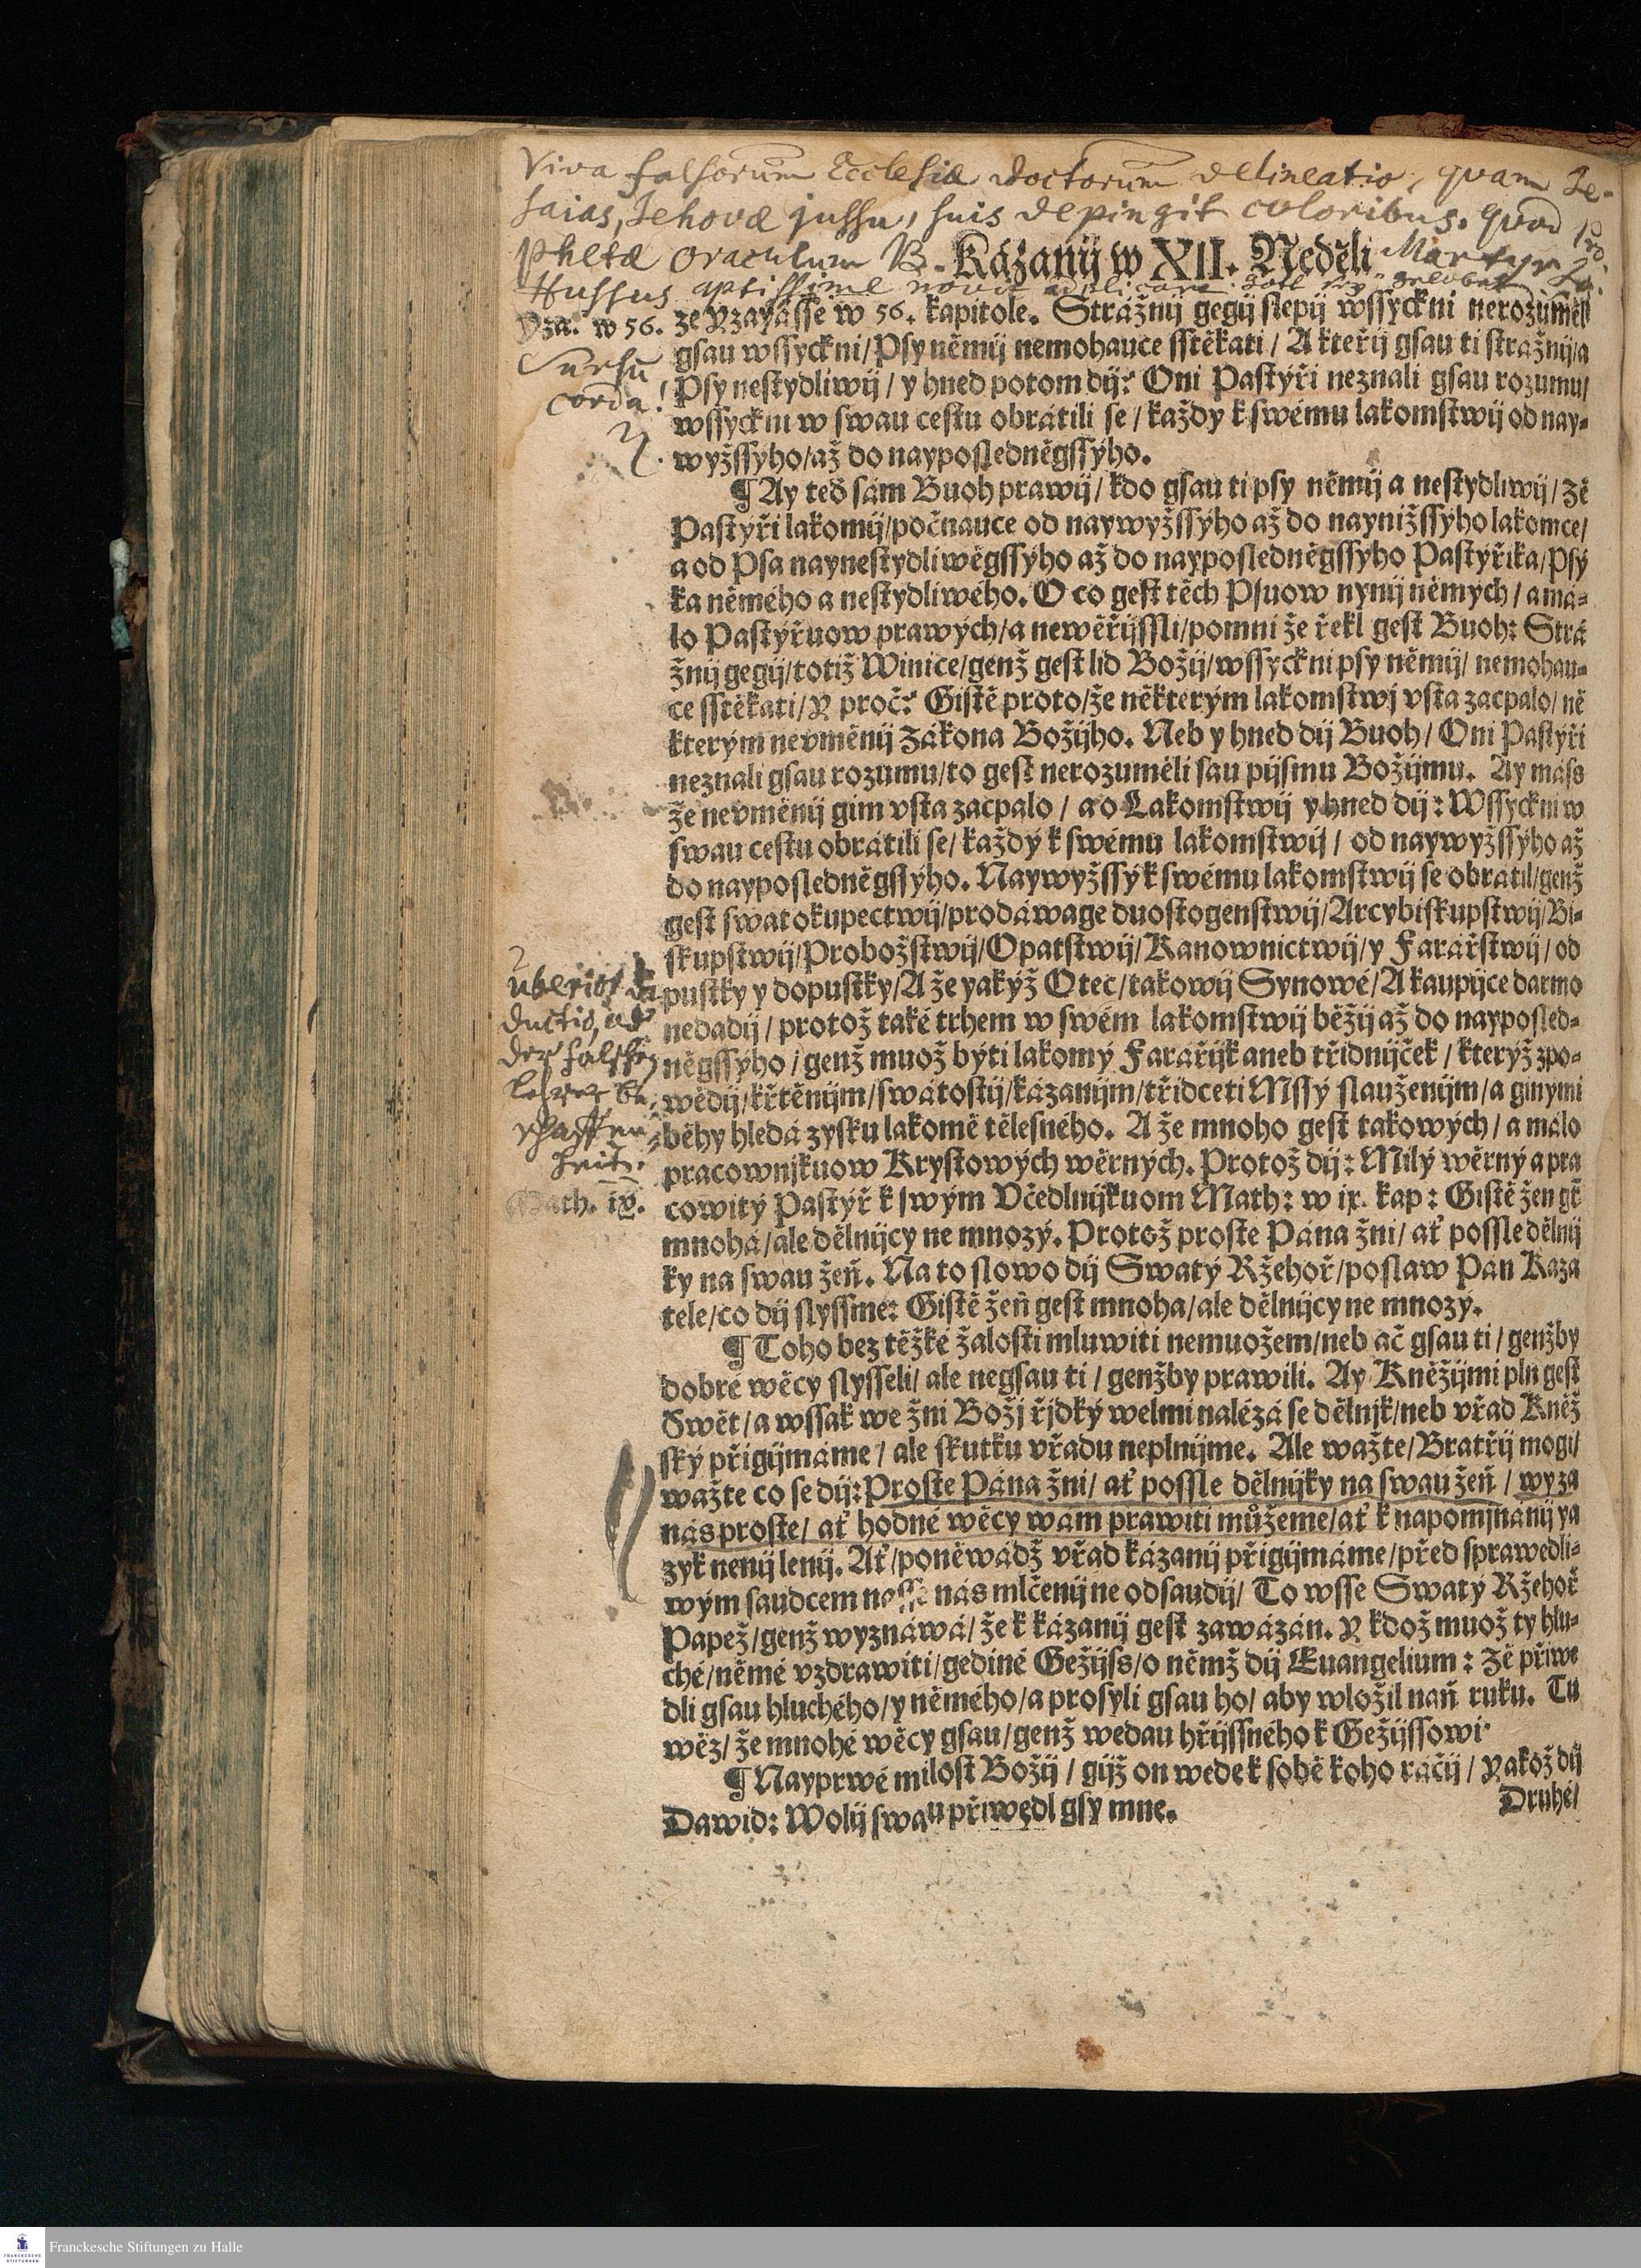 Viva falsorum Ecclesiæ doctorum delineatio, quam Je-
saias, Jehovæ jussu, suis depingit coloribus. quod Pro-
phetæ oraculum B. Martyr Jo.
Hussus aptissime novit applicare. Gott sey gelobet
Kázanij w XII. Neděli
Yza. w 56.
Sursu
corda!
ze Yzayásse w 56. kapitole. Strážnij gegij slepij wssyckni nerozuměli
gsau wssyckni/Psy němij nemohauce sstěkati / A kteřij gsau ti stražnij/a
Psy nestydliwij / y hned potom dij: Oni Pastýři neznali gsau rozumu/
wssyckni w swau cestu obrátili se / každy k swému lakomstwij od nay-
wyžssýho/až do nayposledněgssýho.
¶ Ay ted sám Buoh prawij / kdo gsau ti psy němij a nestydliwij / zě
Pastýři lakomij/počnauce od naywyžssýho až do naynižssýho lakomce/
a od Psa naynestydliwěgssýho až do nayposledněgssýho Pastýřika/Psý
ka němého a nestydliwého. O co gest těch Psuow nynij němých / a má-
lo Pastýřuow prawých/a newěřijssli/pomni že řekl gest Buoh: Strá
žnij gegij/totiž Winice/genž gest lid Božij/wssyckni psy němij/ nemohau-
ce sstěkati/ Y proč: Gistě proto/že některým lakomstwj vsta zacpalo/ ně
kterým nevměnij Zákona Božijho. Neb y hned dij Buoh / Oni Pastýři
neznali gsau rozumu/to gest nerozuměli sau pijsmu Božijmu. Ay máss
že nevměnij gim vsta zacpalo / a o Lakomstwij y hned dij: Wssyckni w
swau cestu obrátili se/ každý k swému lakomstwij / od naywyžssýho až
do nayposledněgssýho. Naywyžssý k swému lakomstwij se obrátil/genž
gest swatokupectwij/prodáwage duostogenstwij/Arcybiskupstwij/Bi-
skupstwij/Probožstwij/Opatstwij/Kanownictwij/y Farářstwij/ od
pustky y dopustky/A že yakýž Otec/takowij Synowé/A kaupijce darmo
nedadij / protož také trhem w swém lakomstwij běžij až do nayposled-
něgssýho / genž muož býti lakomý Farařijk aneb třidnijček / kterýž zpo-
wědij/křtěnijm/swátostij/kázanijm/třidceti Mssý slauženijm/a ginymi
běhy hledá zysku lakomě tělesného. A že mnoho gest takowých / a málo
pracownjkuow Krystowých wěrných. Protož dij: Milý wěrný a pra
cowitý Pastýř k swým Včedlnijkuom Math: w ix. kap: Gistě žen gt
mnohá/ale dělnijcy ne mnozý. Protož proste Pána žni/ ať possle dělnij
ky na swau žeň. Na to slowo dij Swatý Ržehoř/poslaw Pán Kaza
tele/co dij slyssme: Gistě žeň gest mnoha/ale dělnijcy ne mnozý.
uberior de-
ductio, od
der falschen
lehrer be-
schaffen-
heit.
Math. ix.
¶ Toho bez těžké žalosti mluwiti nemuožem/neb ač gsau ti / genžby
dobré wěcy slysseli/ ale negsau ti / genžby prawili. Ay Kněžijmi pln gest
Swět/a wssak we žni Božj řjdký welmi nalézá se dělnjk/neb vřad Kněž
ský přigijmáme / ale skutku vřadu neplnijme. Ale wažte/Bratřij mogi/
wažte co se dij: Proste Pána žni/ ať possle dělnijky na swau žeň / wy za
nás proste/ ať hodné wěcy wám prawiti můžeme/ať k napomjnanij ya
zyk nenij lenij. Ať/poněwádž vřad kázanij přigijmáme/před sprawedli-
wým saudcem nasse nás mlčenij ne odsaudij/ To wsse Swatý Ržehoř
Papež/genž wyznáwá/že k kázanij gest zawázán. Y kdož muož ty hlu-
ché/němé vzdrawiti/gediné Gežijss/o němž dij Euangelium: Zě přiwe
dli gsau hluchého/y němého/a prosyli gsau ho/ aby wložil naň ruku. Tu
wěz/ že mnohé wěcy gsau/genž wedau hřijssného k Gežijssowi.
¶ Nayprwé milost Božij / gijž on wede k sobě koho ráčij / Yakož dij
Dawid: Wolij swau přiwedl gsy mne.
Druhé/
Franckesche Stiftungen zu Halle
FRANCKESCHE STIFTUNGEN